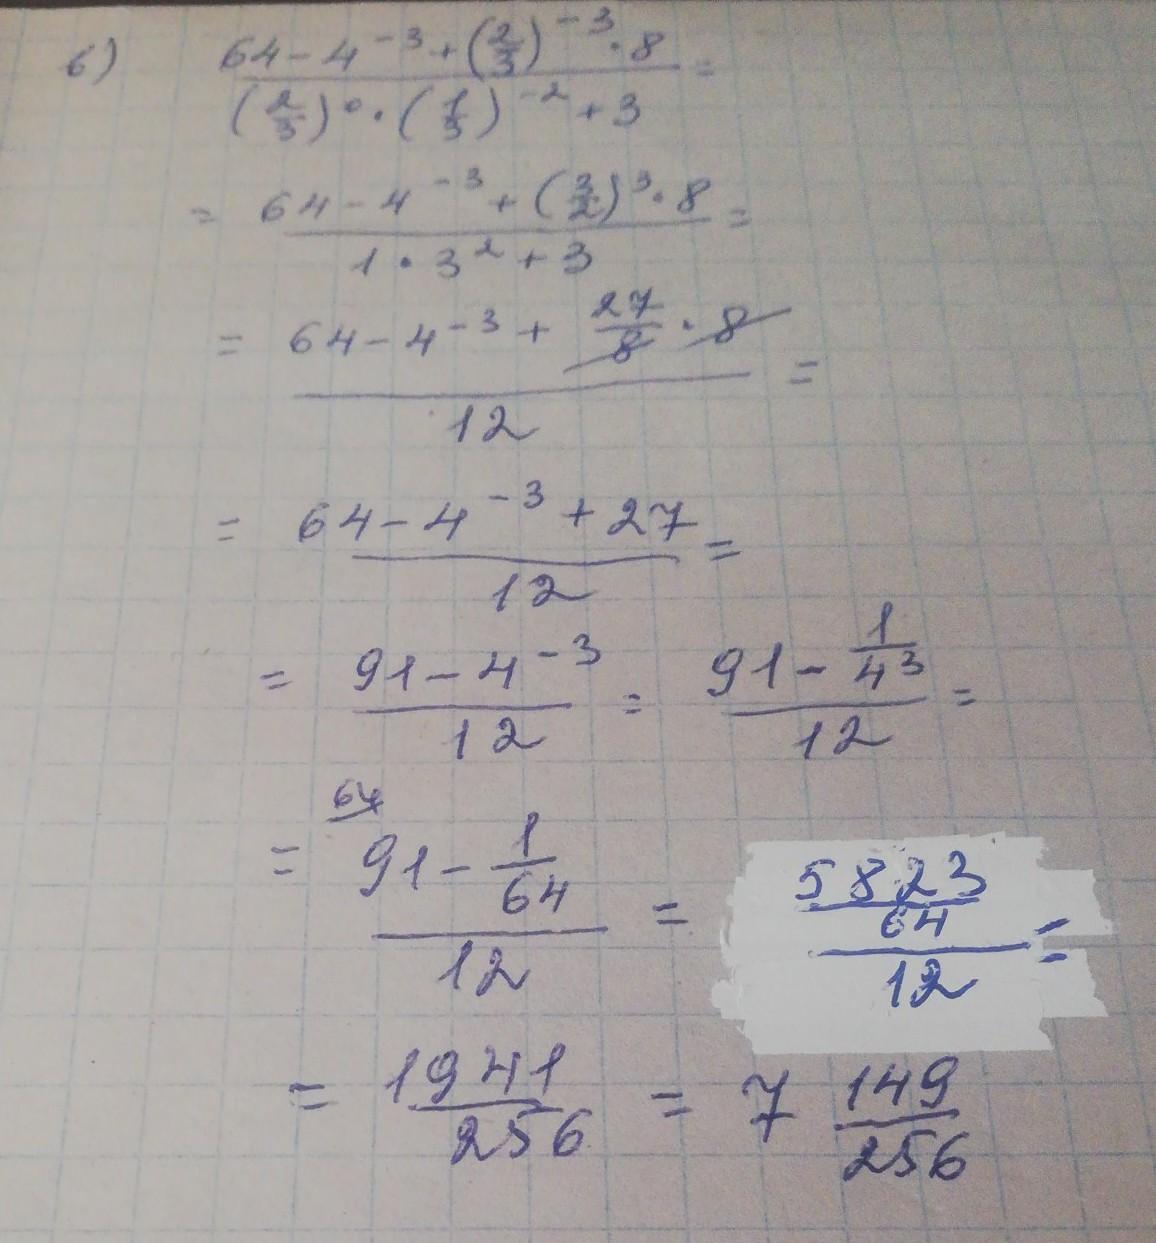 б) (64 - 4^-3 + (2/3)^-3 · 8) / ((2/3)^0 · (1/3)^-2 + 3) =
= (64 - 4^-3 + (3/2)^3 · 8) / (1 · 3^2 + 3) =
= (64 - 4^-3 + 27/8 · 8) / 12 =
= (64 - 4^-3 + 27) / 12 =
= (91 - 4^-3) / 12 = (91 - 1/4^3) / 12 =
64
= (91 - 1/64) / 12 = (5823/64) / 12 =
= 1941/256 = 7 149/256